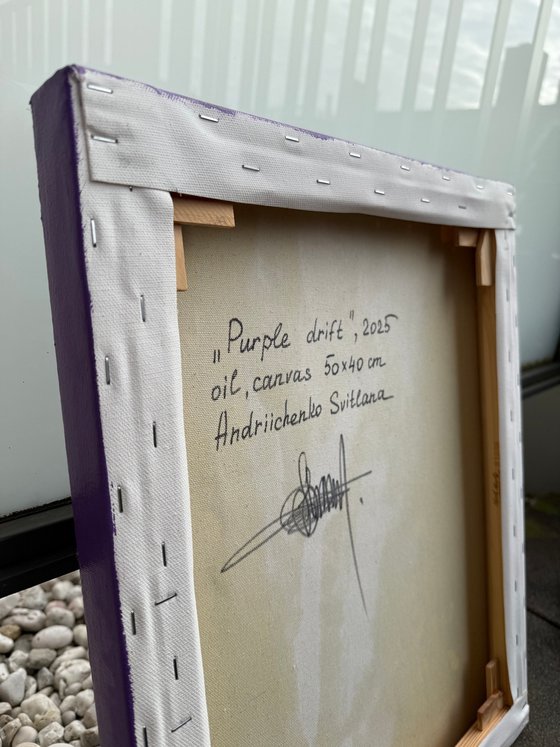 „Purple drift”, 2025
oil, canvas 50x40 cm
Andriichenko Svitlana